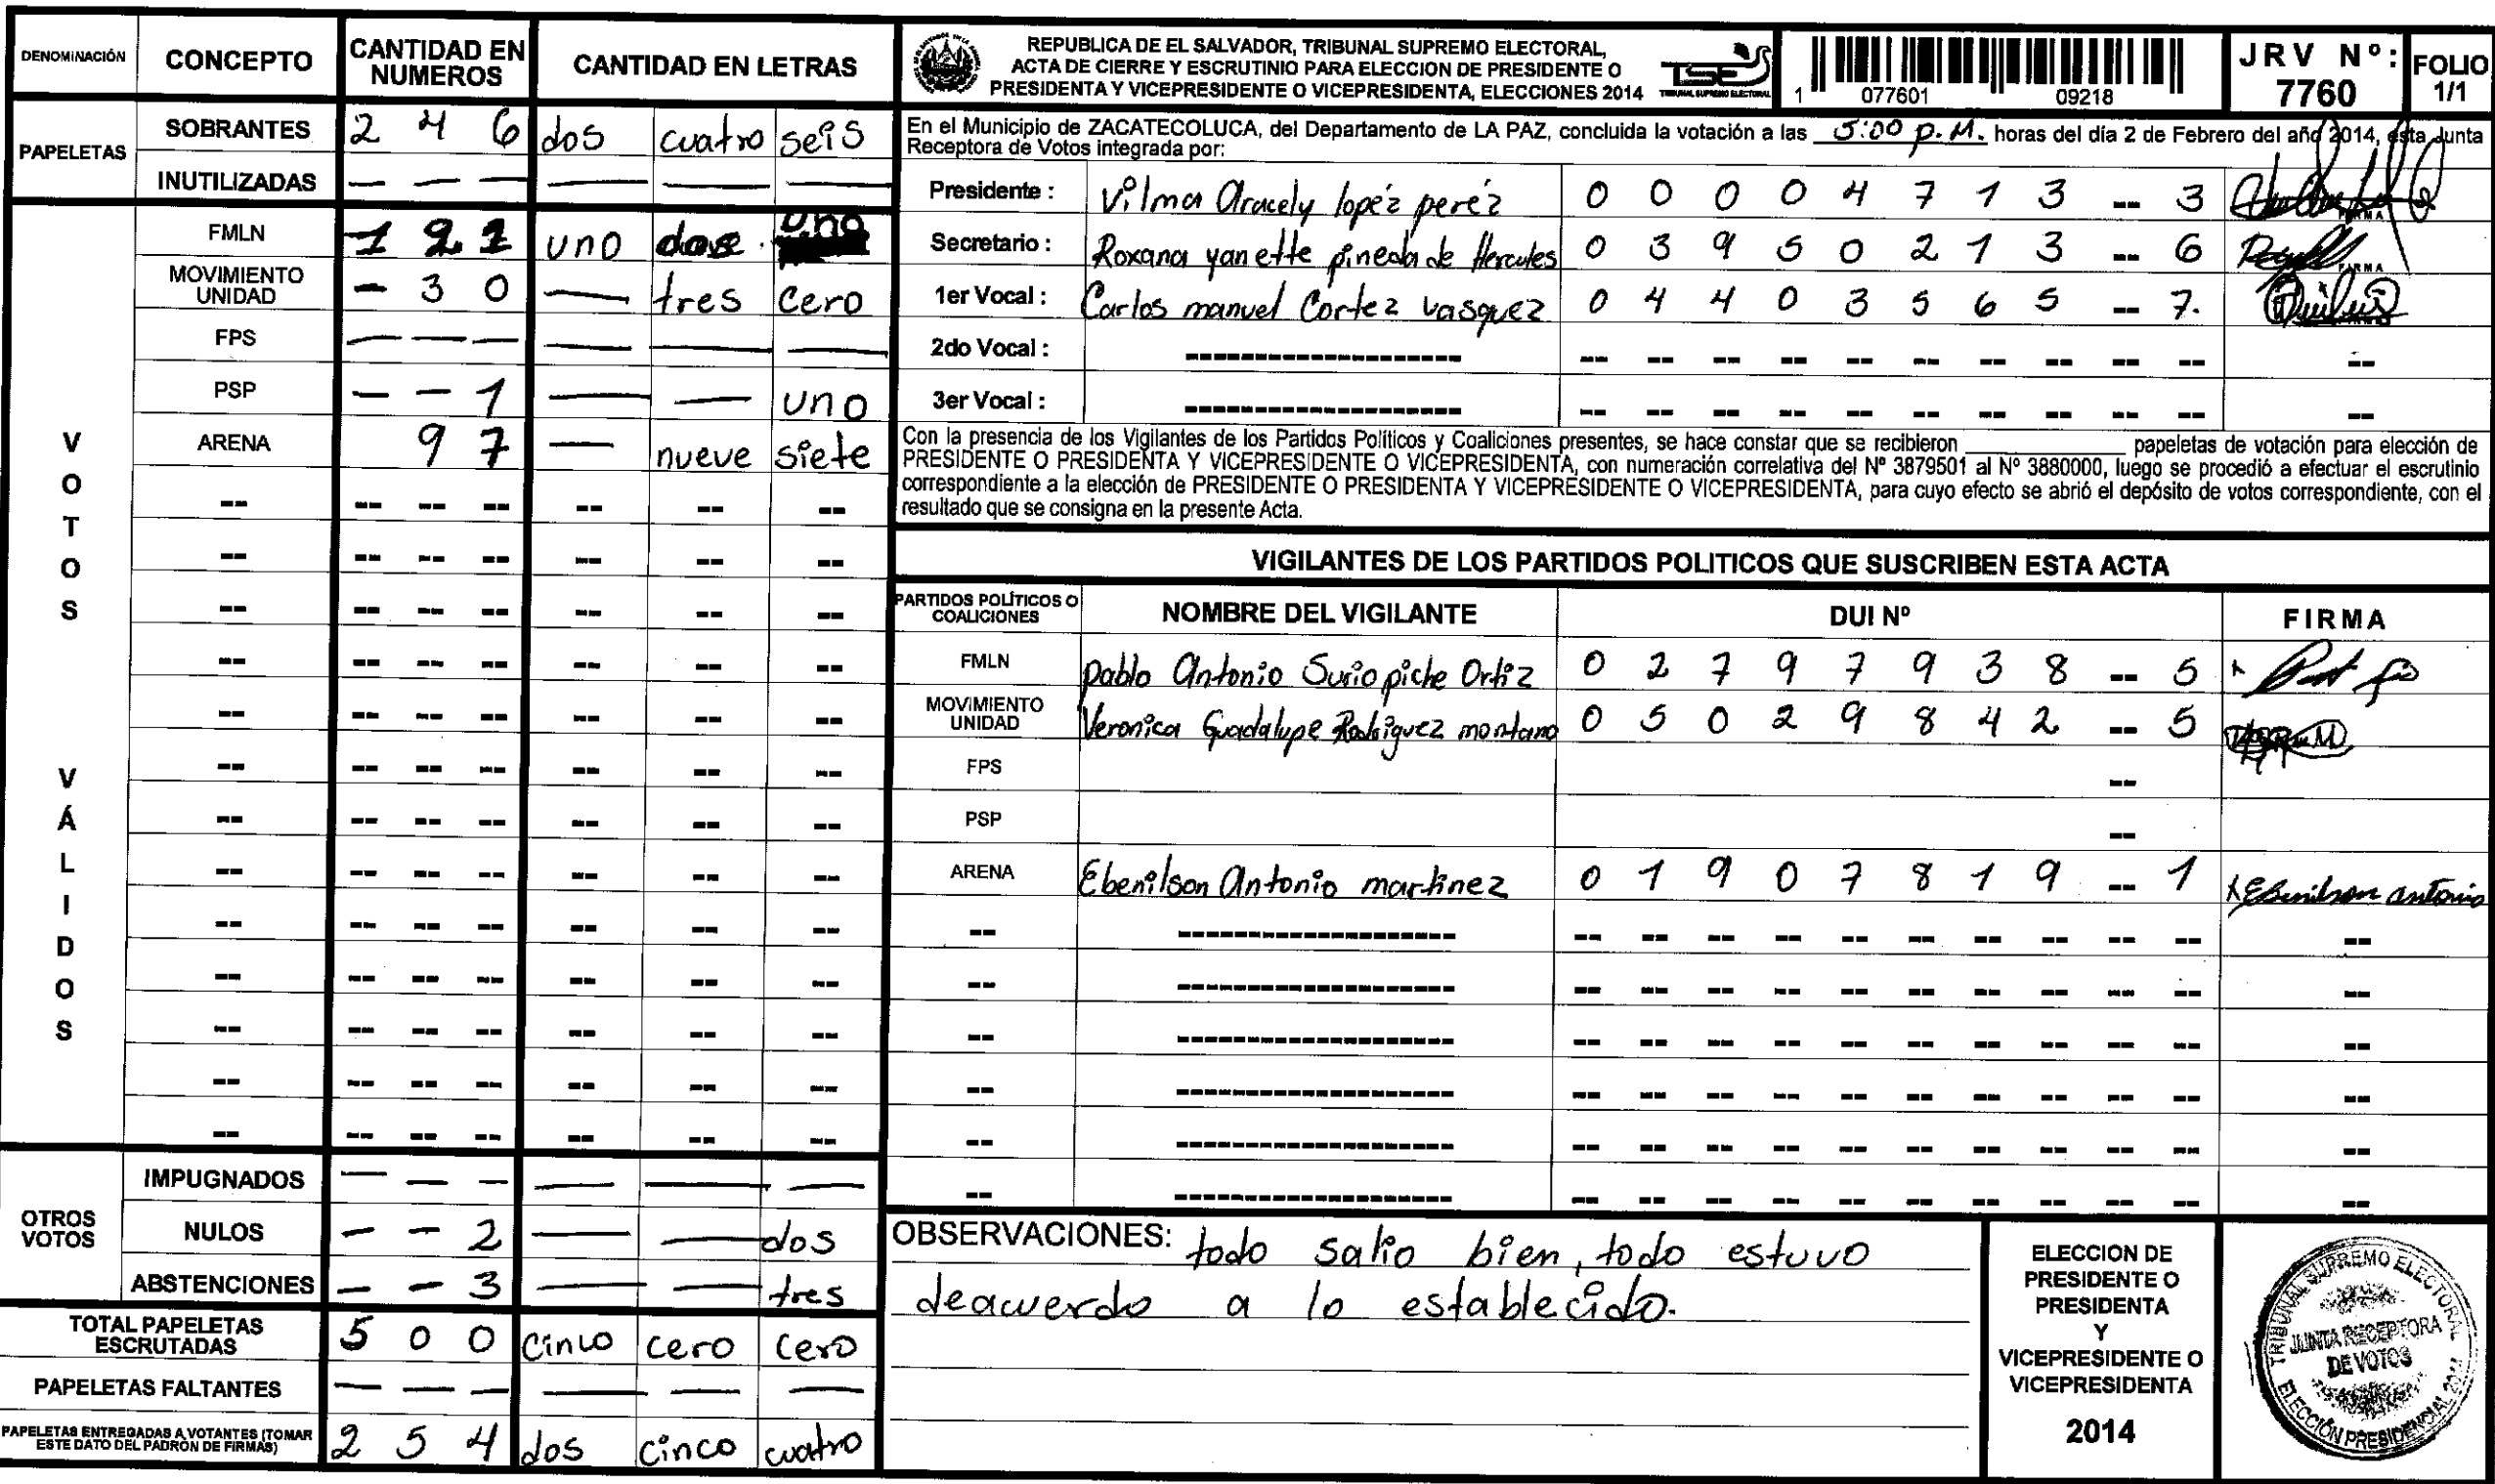 DENOMINACIÓN CONCEPTO CANTIDAD EN NUMEROS CANTIDAD EN LETRAS
PAPELETAS
SOBRANTES 2 4 6 dos cuatro seis
INUTILIZADAS — — — — — —
VOTOS VÁLIDOS
FMLN 1 2 1 uno dos uno
MOVIMIENTO UNIDAD — 3 0 — tres cero
FPS — — — — — —
PSP — — 1 — — uno
ARENA 9 7 — nueve siete
OTROS VOTOS
IMPUGNADOS — — — — — —
NULOS — — 2 — — dos
ABSTENCIONES — — 3 — — tres
TOTAL PAPELETAS ESCRUTADAS 5 0 0 cinco cero cero
PAPELETAS FALTANTES — — — — — —
PAPELETAS ENTREGADAS A VOTANTES (TOMAR ESTE DATO DEL PADRÓN DE FIRMAS) 2 5 4 dos cinco cuatro
REPUBLICA DE EL SALVADOR, TRIBUNAL SUPREMO ELECTORAL,
ACTA DE CIERRE Y ESCRUTINIO PARA ELECCION DE PRESIDENTE O
PRESIDENTA Y VICEPRESIDENTE O VICEPRESIDENTA, ELECCIONES 2014
TSE
TRIBUNAL SUPREMO ELECTORAL
1 077601 09218
JRV Nº: 7760
FOLIO 1/1
En el Municipio de ZACATECOLUCA, del Departamento de LA PAZ, concluida la votación a las 5:00 p.M. horas del día 2 de Febrero del año 2014, ésta Junta
Receptora de Votos integrada por:
Presidente : Vilma Aracely lopéz peréz 0 0 0 0 4 7 1 3 -- 3
Secretario : Roxana yanette pineda de Hercules 0 3 9 5 0 2 1 3 -- 6
1er Vocal : Carlos manuel Cortez vasquez 0 4 4 0 3 5 6 5 -- 7.
2do Vocal :
3er Vocal :
Con la presencia de los Vigilantes de los Partidos Políticos y Coaliciones presentes, se hace constar que se recibieron __________ papeletas de votación para elección de
PRESIDENTE O PRESIDENTA Y VICEPRESIDENTE O VICEPRESIDENTA, con numeración correlativa del Nº 3879501 al Nº 3880000, luego se procedió a efectuar el escrutinio
correspondiente a la elección de PRESIDENTE O PRESIDENTA Y VICEPRESIDENTE O VICEPRESIDENTA, para cuyo efecto se abrió el depósito de votos correspondiente, con el
resultado que se consigna en la presente Acta.
VIGILANTES DE LOS PARTIDOS POLITICOS QUE SUSCRIBEN ESTA ACTA
PARTIDOS POLÍTICOS O COALICIONES NOMBRE DEL VIGILANTE DUI Nº FIRMA
FMLN pablo Antonio Suriopiche Ortiz 0 2 7 9 7 9 3 8 -- 5
MOVIMIENTO UNIDAD Veronica Guadalupe Rodriguez montano 0 5 0 2 9 8 4 2 -- 5
FPS --
PSP --
ARENA Ebenilson Antonio martinez 0 1 9 0 7 8 1 9 -- 1 Ebenilson antonio
OBSERVACIONES: todo salio bien, todo estuvo
deacuerdo a lo establecido.
ELECCION DE
PRESIDENTE O
PRESIDENTA
Y
VICEPRESIDENTE O
VICEPRESIDENTA
2014
TRIBUNAL SUPREMO ELECTORAL
JUNTA RECEPTORA
DE VOTOS
ELECCIÓN PRESIDENCIAL 2014